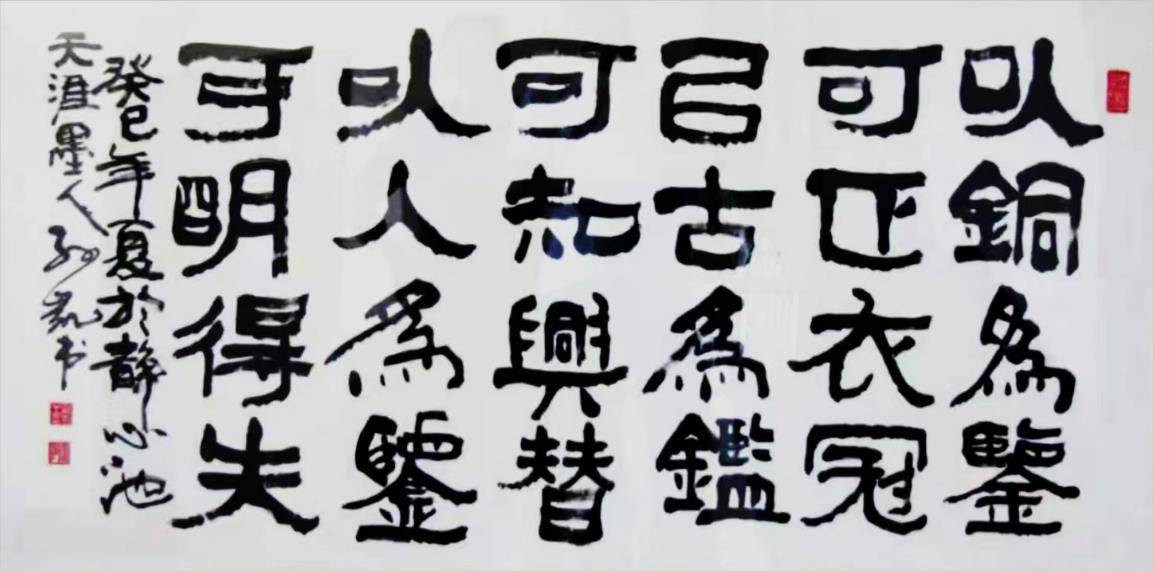 以銅為鑒
可正衣冠
以古為鑑
可知興替
以人為鑒
可明得失
癸巳年夏於静心池
天涯墨人书